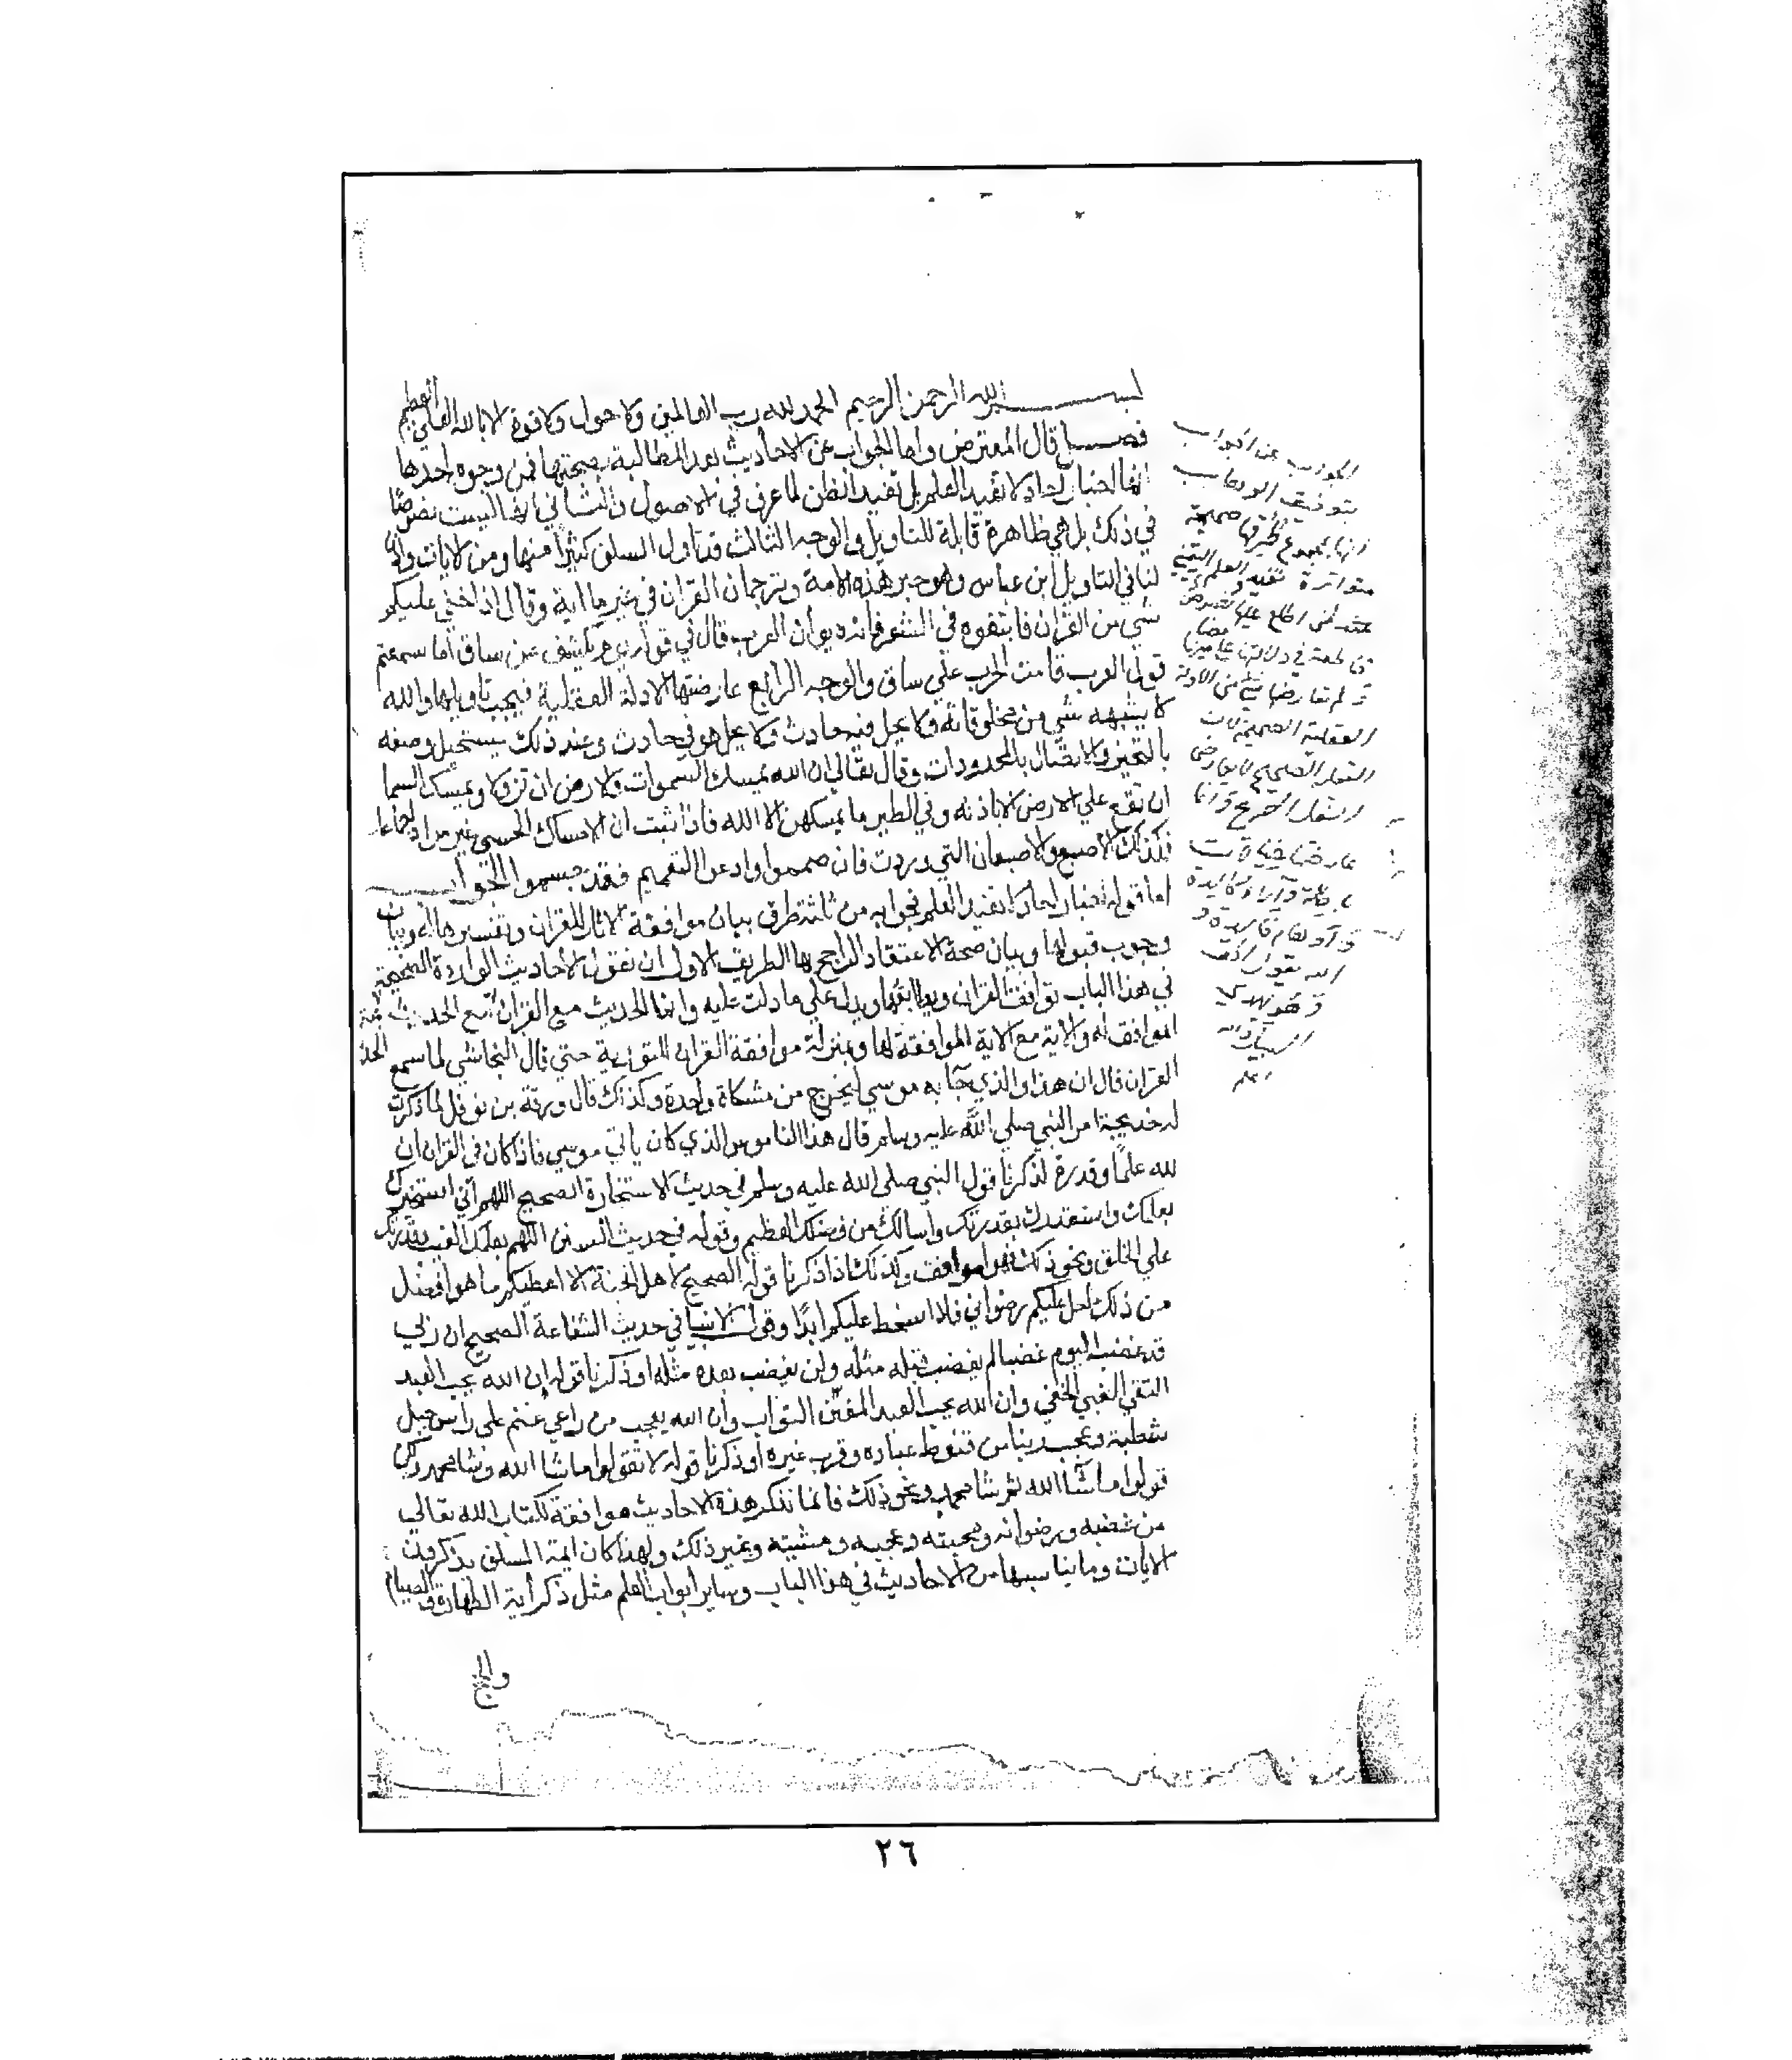 بسم الله الرحمن الرحيم الحمد لله رب العالمين ولا حول ولا قوة الا بالله العلي العظيم
فصل قال المعترض واما الجواب عن الاحاديث بعد المطالبة بصحتها فمن وجوه احدها
انها اخبار آحاد لا تفيد العلم بل تفيد الظن لما عرف في الاصول والثاني انها ليست نصوصا
في ذلك بل هي ظاهرة قابلة للتاويل والوجه الثالث قد تاول السلف كثيرا منها ومن الايات
لنا في التاويل ابن عباس وهو حبر هذه الامة وترجمان القران في غير ما اية وقال اذا خفي عليكم
شي من القران فابتغوه في الشعر فانه ديوان العرب قال في قوله يوم يكشف عن ساق اما سمعتم
قول العرب قامت الحرب علي ساق والوجه الرابع عارضتها الادلة العقلية فيجب تاويلها والله
لا يشبهه شي من مخلوقاته ولا يحل فيه حادث ولا يحل هو في حادث وعند ذلك يستحيل وصفه
بالتحيز والاتصال بالمحدودات وقال تعالي ان الله يمسك السموات والارض ان تزولا ويمسك السما
ان تقع علي الارض الا باذنه وفي الطير ما يمسكهن الا الله فاذا ثبت ان الامساك الحسي غير مراد
فكذلك الاصبع والاصبعان التي وردت فان صمموا وادعوا التعميم فقد حسموا الجواب
اما قوله اخبار احاد لا تفيد العلم فجوابه من ثلثة طرق بيان موافقة الاثار للقران وتفسيرها له وبيان
وجوب قبولها وبيان صحة الاعتقاد الراجح بها الطريق الاول ان نقول الاحاديث الواردة الصحيحة
في هذا الباب توافق القران ويطابقها ويدل علي ما دلت عليه وانما الحديث مع القران مع الحديث
الموافق له والاية مع الاية الموافقة لها وبمنزلة موافقة القران للتورية حتي قال النجاشي لما سمع
القران قال ان هذا والذي جآ به موسي ليخرج من مشكاة واحدة وكذلك قال ورقة بن نوفل لما ذكرت
له خديجة امر النبي صلي الله عليه وسلم قال هذا الناموس الذي كان ياتي موسي فاذا كان في القران ان
لله علما وقدرة لذكرنا قول النبي صلي الله عليه وسلم في حديث الاستخارة الصحيح اللهم اني استخيرك
بعلمك واستقدرك بقدرتك واسالك من فضلك العظيم وقوله في حديث السنن اللهم بعلمك الغيب وقدرتك
علي الخلق ونحو ذلك موافق وكذلك اذا ذكرنا قوله الصحيح لاهل الجنة الا اعطيكم ما هو افضل
من ذلك احل عليكم رضواني فلا اسخط عليكم ابدا وقول الانبيا في حديث الشفاعة الصحيح ان ربي
قد غضب اليوم غضبا لم يغضب قبله مثله ولن يغضب بعده مثله او ذكرنا قوله ان الله يحب العبد
التقي الغني الخفي وان الله يحب العبد المفتن التواب وان الله يعجب من راعي غنم علي راس جبل
شظية وعجب ربنا من قنوط عباده وقرب غيره او ذكرنا قوله لا تقولوا ما شا الله وشا محمد ولكن
قولوا ما شآ الله ثم شا محمد ونحو ذلك فانما نذكر هذه الاحاديث موافقة لكتاب الله تعالي
من غضبه ورضوانه ومحبته وعجبه ومشيته وغير ذلك ولهذا كان ايمة السلف يذكرون
الايات وما يناسبها من الاحاديث في هذا الباب وساير ابواب العلم مثل ذكر اية الطهارة والصيام
والحج
الجواب عن الجواب
بتوفيق الوهاب
انها بمجموع طرقها صحيحة
متواترة تفيد العلم اليقيني
العقلية الصحيحة
العقل الصحيح
والله يقول الحق
وهو يهدي
السبيل والله
اعلم
٢٦